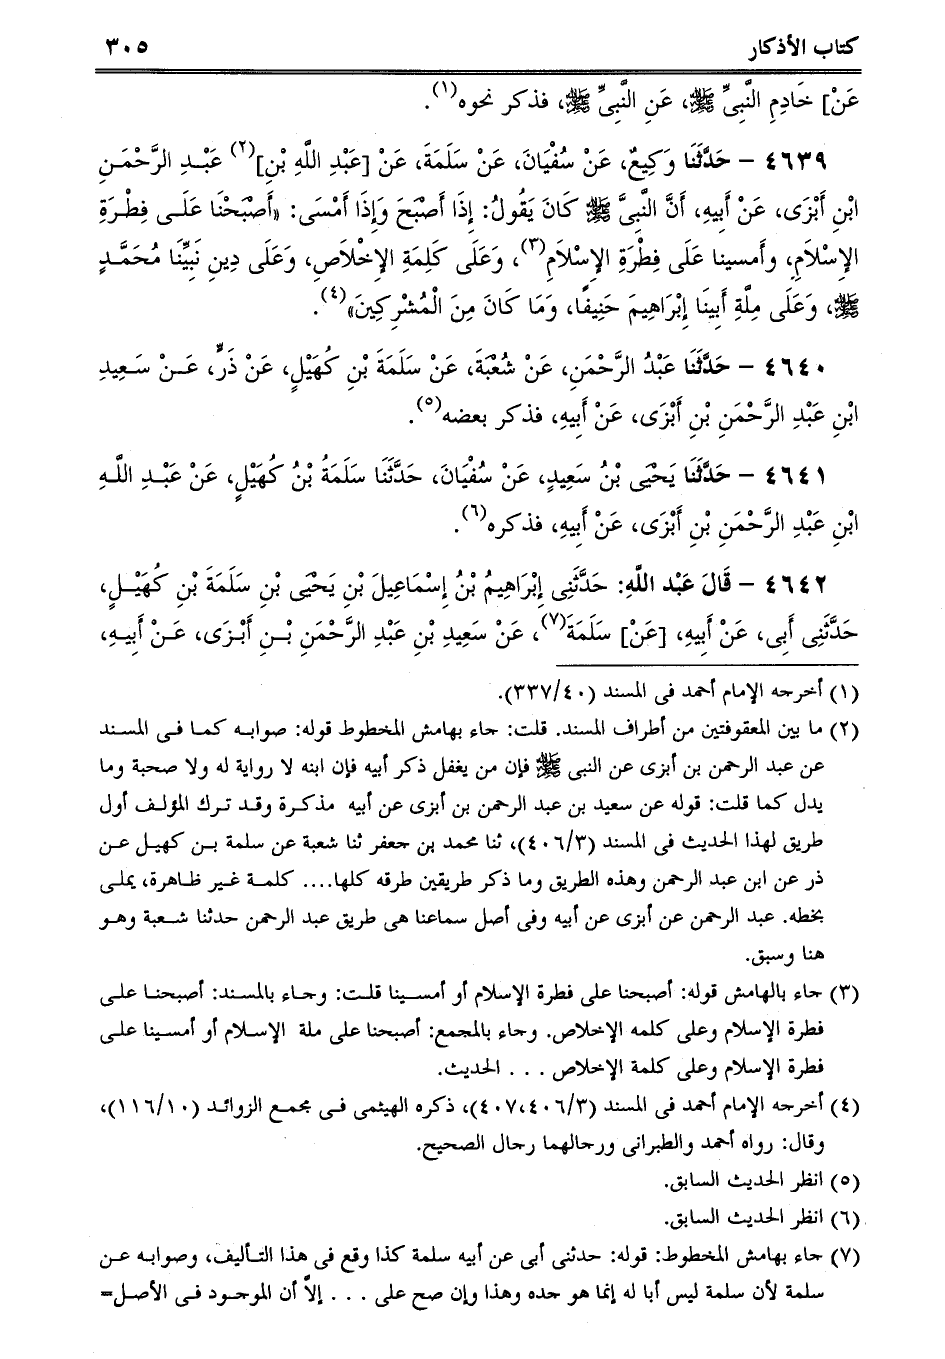 كتاب الأذكار ٣٠٥
عَنْ] خَادِمِ النَّبِيِّ ﷺ، عَنِ النَّبِيِّ ﷺ، فذكر نحوه(١).
٤٦٣٩ - حَدَّثَنَا وَكِيعٌ، عَنْ سُفْيَانَ، عَنْ سَلَمَةَ، عَنْ [عَبْدِ اللَّهِ بْنِ](٢) عَبْدِ الرَّحْمَنِ
ابْنِ أَبْزَى، عَنْ أَبِيهِ، أَنَّ النَّبِيَّ ﷺ كَانَ يَقُولُ: إِذَا أَصْبَحَ وَإِذَا أَمْسَى: «أَصْبَحْنَا عَلَى فِطْرَةِ
الإِسْلَامِ، وأَمسينا عَلَى فِطْرَةِ الإِسْلَامِ(٣)، وَعَلَى كَلِمَةِ الإِخْلَاصِ، وَعَلَى دِينِ نَبِيِّنَا مُحَمَّدٍ
ﷺ، وَعَلَى مِلَّةِ أَبِينَا إِبْرَاهِيمَ حَنِيفًا، وَمَا كَانَ مِنَ الْمُشْرِكِينَ»(٤).
٤٦٤٠ - حَدَّثَنَا عَبْدُ الرَّحْمَنِ، عَنْ شُعْبَةَ، عَنْ سَلَمَةَ بْنِ كُهَيْلٍ، عَنْ ذَرٍّ، عَنْ سَعِيدِ
ابْنِ عَبْدِ الرَّحْمَنِ بْنِ أَبْزَى، عَنْ أَبِيهِ، فذكر بعضه(٥).
٤٦٤١ - حَدَّثَنَا يَحْيَى بْنُ سَعِيدٍ، عَنْ سُفْيَانَ، حَدَّثَنَا سَلَمَةُ بْنُ كُهَيْلٍ، عَنْ عَبْدِ اللَّهِ
ابْنِ عَبْدِ الرَّحْمَنِ بْنِ أَبْزَى، عَنْ أَبِيهِ، فذكره(٦).
٤٦٤٢ - قَالَ عَبْد اللهِ: حَدَّثَنِى إِبْرَاهِيمُ بْنُ إِسْمَاعِيلَ بْنِ يَحْيَى بْنِ سَلَمَةَ بْنِ كُهَيْلٍ،
حَدَّثَنِى أَبِى، عَنْ أَبِيهِ، [عَنْ] سَلَمَةَ(٧)، عَنْ سَعِيدِ بْنِ عَبْدِ الرَّحْمَنِ بْنِ أَبْزَى، عَنْ أَبِيهِ،
(١) أخرجه الإمام أحمد فى المسند (٣٣٧/٤٠).
(٢) ما بين المعقوفتين من أطراف المسند. قلت: جاء بهامش المخطوط قوله: صوابه كما فى المسند
عن عبد الرحمن بن أبزى عن النبى ﷺ فإن من يغفل ذكر أبيه فإن ابنه لا رواية له ولا صحبة وما
يدل كما قلت: قوله عن سعيد بن عبد الرحمن بن أبزى عن أبيه مذكرة وقد ترك المؤلف أول
طريق لهذا الحديث فى المسند (٤٠٦/٣)، ثنا محمد بن جعفر ثنا شعبة عن سلمة بن كهيل عن
ذر عن ابن عبد الرحمن وهذه الطريق وما ذكر طريقين طرقه كلها.... كلمة غير ظاهرة، يملى
بخطه. عبد الرحمن عن أبزى عن أبيه وفى أصل سماعنا هى طريق عبد الرحمن حدثنا شعبة وهو
هنا وسبق.
(٣) جاء بالهامش قوله: أصبحنا على فطرة الإسلام أو أمسينا قلت: وجاء بالمسند: أصبحنا على
فطرة الإسلام وعلى كلمه الإخلاص. وجاء بالمجمع: أصبحنا على ملة الإسلام أو أمسينا على
فطرة الإسلام وعلى كلمة الإخلاص . . . الحديث.
(٤) أخرجه الإمام أحمد فى المسند (٤٠٧،٤٠٦/٣)، ذكره الهيثمى فى مجمع الزوائد (١١٦/١٠)،
وقال: رواه أحمد والطبرانى ورجالهما رجال الصحيح.
(٥) انظر الحديث السابق.
(٦) انظر الحديث السابق.
(٧) جاء بهامش المخطوط: قوله: حدثنى أبى عن أبيه سلمة كذا وقع فى هذا التأليف، وصوابه عن
سلمة لأن سلمة ليس أبا له إنما هو جده وهذا وإن صح على . . . إلاَّ أن الموجود فى الأصل=